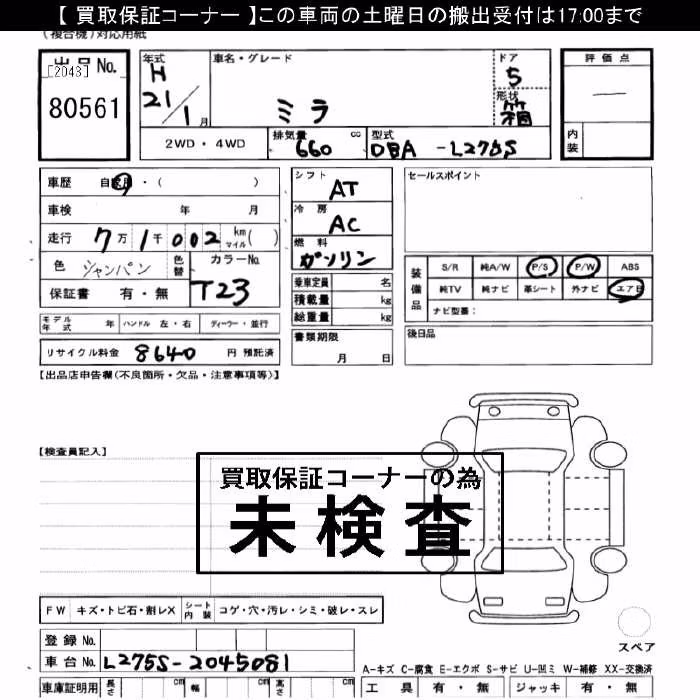 【 買取保証コーナー 】この車両の土曜日の搬出受付は17:00まで
(複合機)対応用紙
出品No.
[2043]
80561
年式 車名・グレード ドア 評価点
H 21/1月 ミラ 5
形状
箱
内装
2WD・4WD 排気量 660 cc 型式 DBA-L275S
車歴 自家用・( )
車検 年 月
走行 7万1千002 km マイル( )
色 シャンパン 色替 カラーNo. T23
保証書 有・無
シフト AT
冷房 AC
燃料 ガソリン
乗車定員 名
積載量 kg
総重量 kg
書類期限
月 日
セールスポイント
装備品 S/R 純A/W P/S P/W ABS
純TV 純ナビ 革シート 外ナビ エアB
ナビ型番:
後日品
モデル年式 年 ハンドル 左・右 ディーラー・並行
リサイクル料金 8640 円 預託済
【出品店申告欄(不良箇所・欠品・注意事項等)】
【検査員記入】
買取保証コーナーの為
未検査
FW キズ・トビ石・割レX シート内装 コゲ・穴・汚レ・シミ・破レ・スレ
スペア
登録No.
車台No. L275S-2045081
A-キズ C-腐食 E-エクボ S-サビ U-凹ミ W-補修 XX-交換済
車庫証明用 長さ cm 幅 cm 高さ cm
工具 有・無 ジャッキ 有・無